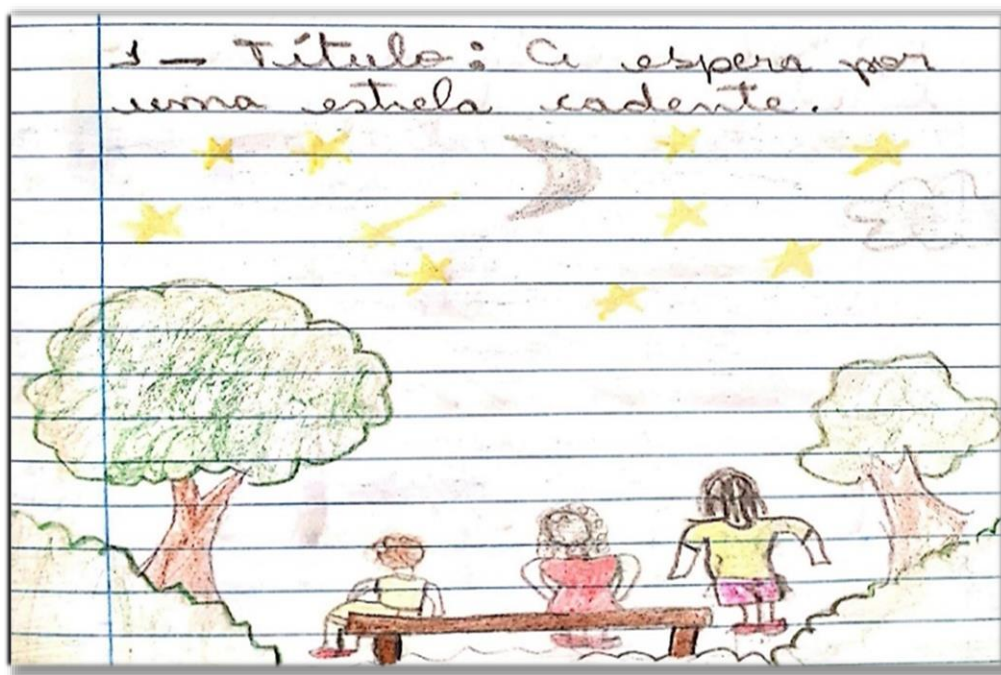 1 – Título: A espera por
uma estrela cadente.